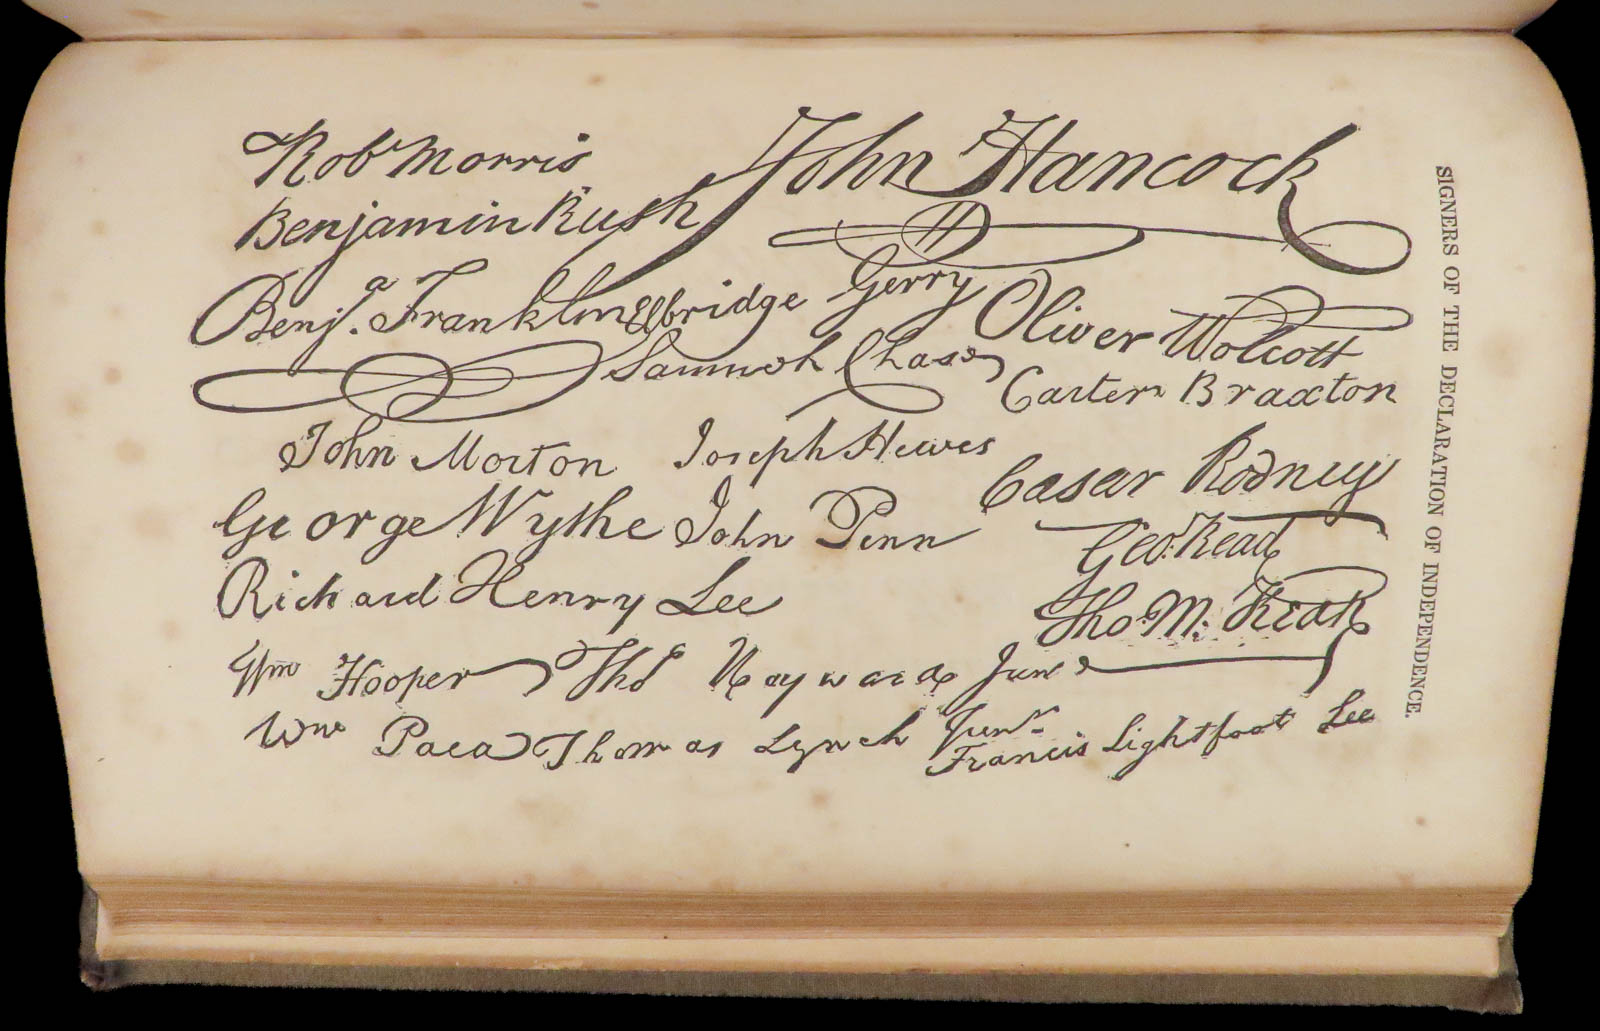 Robt Morris John Hancock
Benjamin Rush
Benja. Franklin Elbridge Gerry Oliver Wolcott
Samuel Chase Carter Braxton
John Morton Joseph Hewes Casar Rodney
George Wythe John Penn Geo. Read
Richard Henry Lee Tho M: Kean
Wm Hooper Thos Heyward Junr
Wm Paca Thomas Lynch Junr
Francis Lightfoot Lee
SIGNERS OF THE DECLARATION OF INDEPENDENCE.